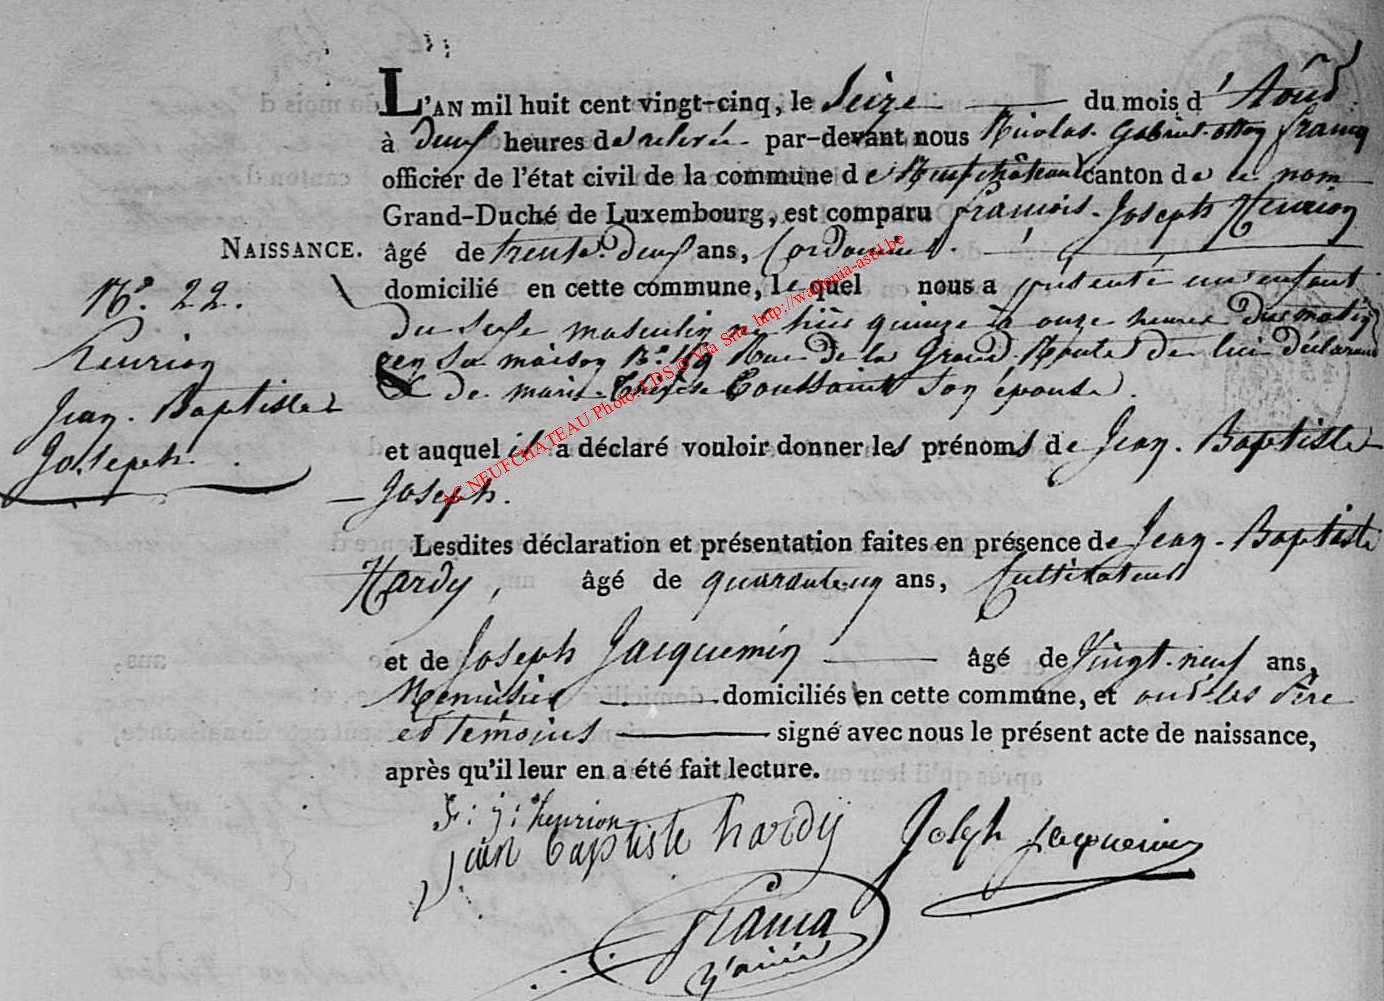 L'AN mil huit cent vingt-cinq, le Seize du mois d'Août
à deux heures de relevée par-devant nous Nicolas Gabriel Francq
officier de l'état civil de la commune de Neufchâteau canton de ce nom
Grand-Duché de Luxembourg, est comparu françois Joseph Henrion
NAISSANCE. âgé de trente deux ans, Cordonnier
N.° 22. domicilié en cette commune, lequel nous a présenté un enfant
du sexe masculin né hier quinze à onze heures du matin
Henrion en sa maison N.° Rue de la Grand Route de lui déclarant
& de marie Thérèse Toussaint son épouse.
Jean-Baptiste
Joseph. et auquel il a déclaré vouloir donner les prénoms de Jean-Baptiste
Joseph.
Lesdites déclaration et présentation faites en présence de Jean-Baptiste
Hardy, âgé de quarante un ans, Cultivateur
et de Joseph Jacquemin âgé de Vingt-neuf ans,
Menuisier domiciliés en cette commune, et ont les Père
et témoins signé avec nous le présent acte de naissance,
après qu'il leur en a été fait lecture.
f: j: henrion
jean baptiste hardy Joseph Jacquemin
Francq
AC NEUFCHATEAU Photo: LDS © Via Site http://wallonia-asbl.be